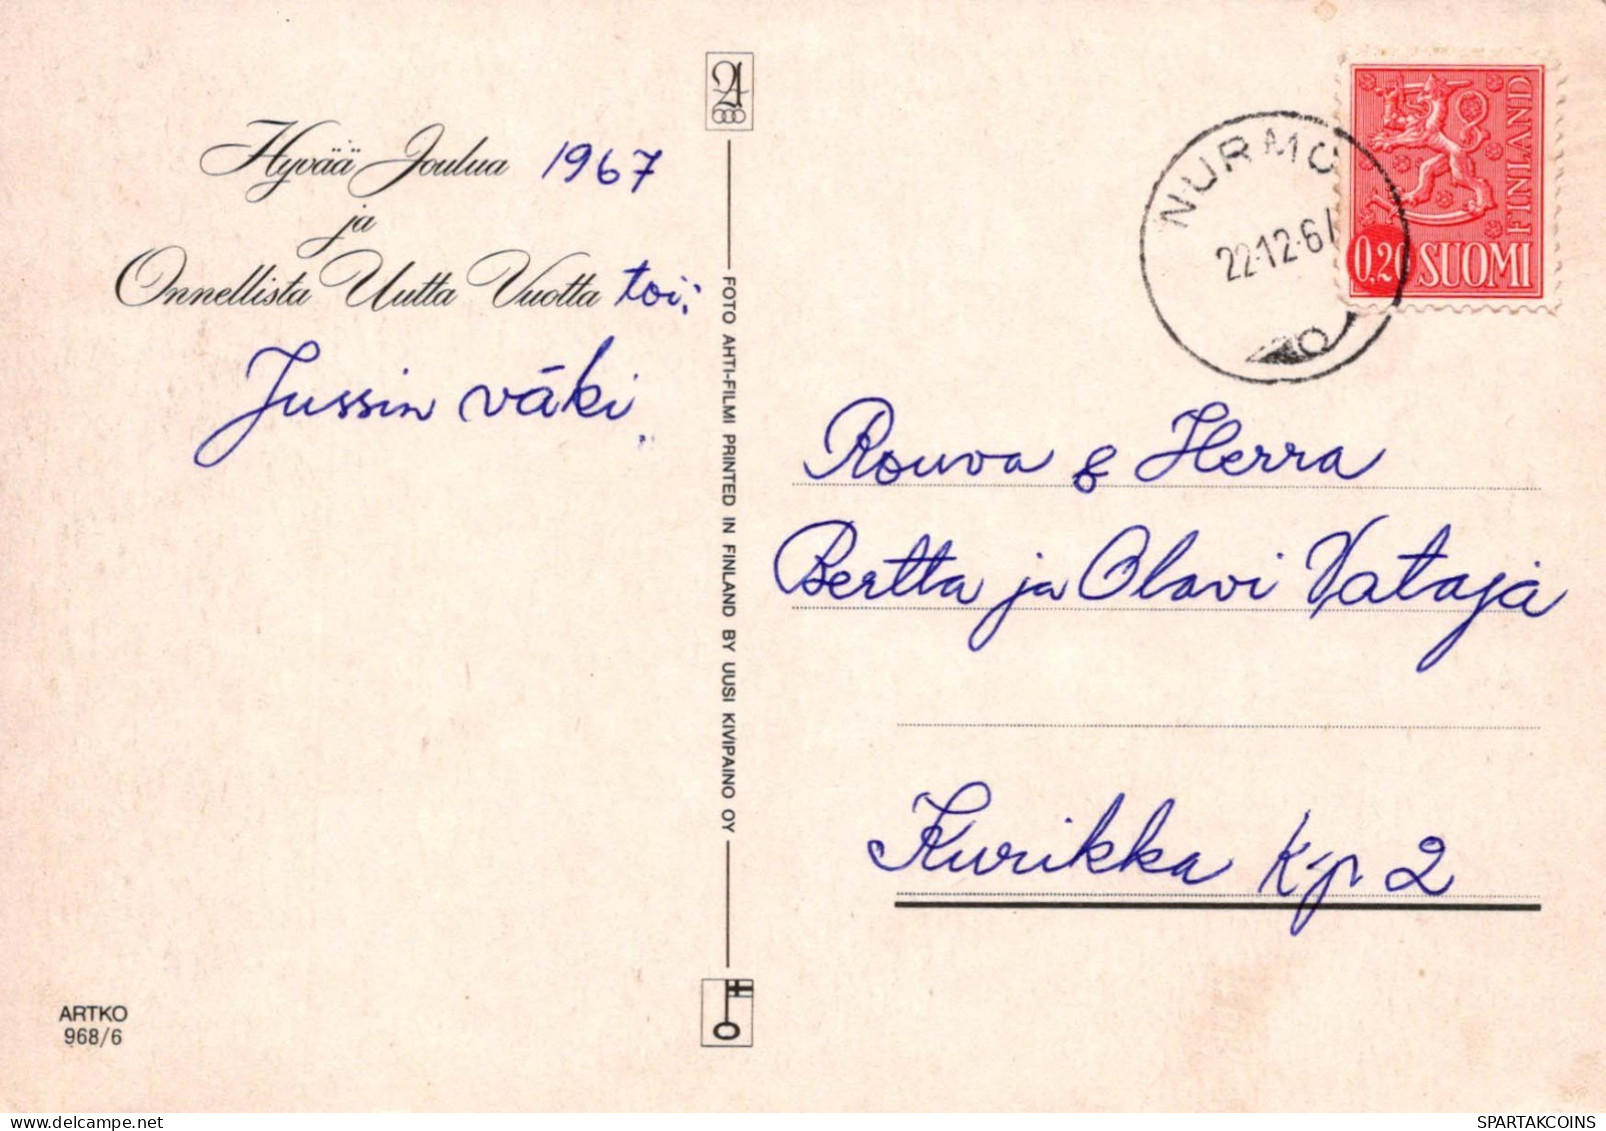 Hyvää Joulua 1967
ja
Onnellista Uutta Vuotta toi;
Jussin väki
ARTKO
968/6
FOTO AHTI-FILMI PRINTED IN FINLAND BY UUSI KIVIPAINO OY
NURMO
22.12.67
FINLAND
0,20 SUOMI
Rouva & Herra
Bertta ja Olavi Vataja
Kurikka k-p 2
delcampe.net
SPARTAKCOINS